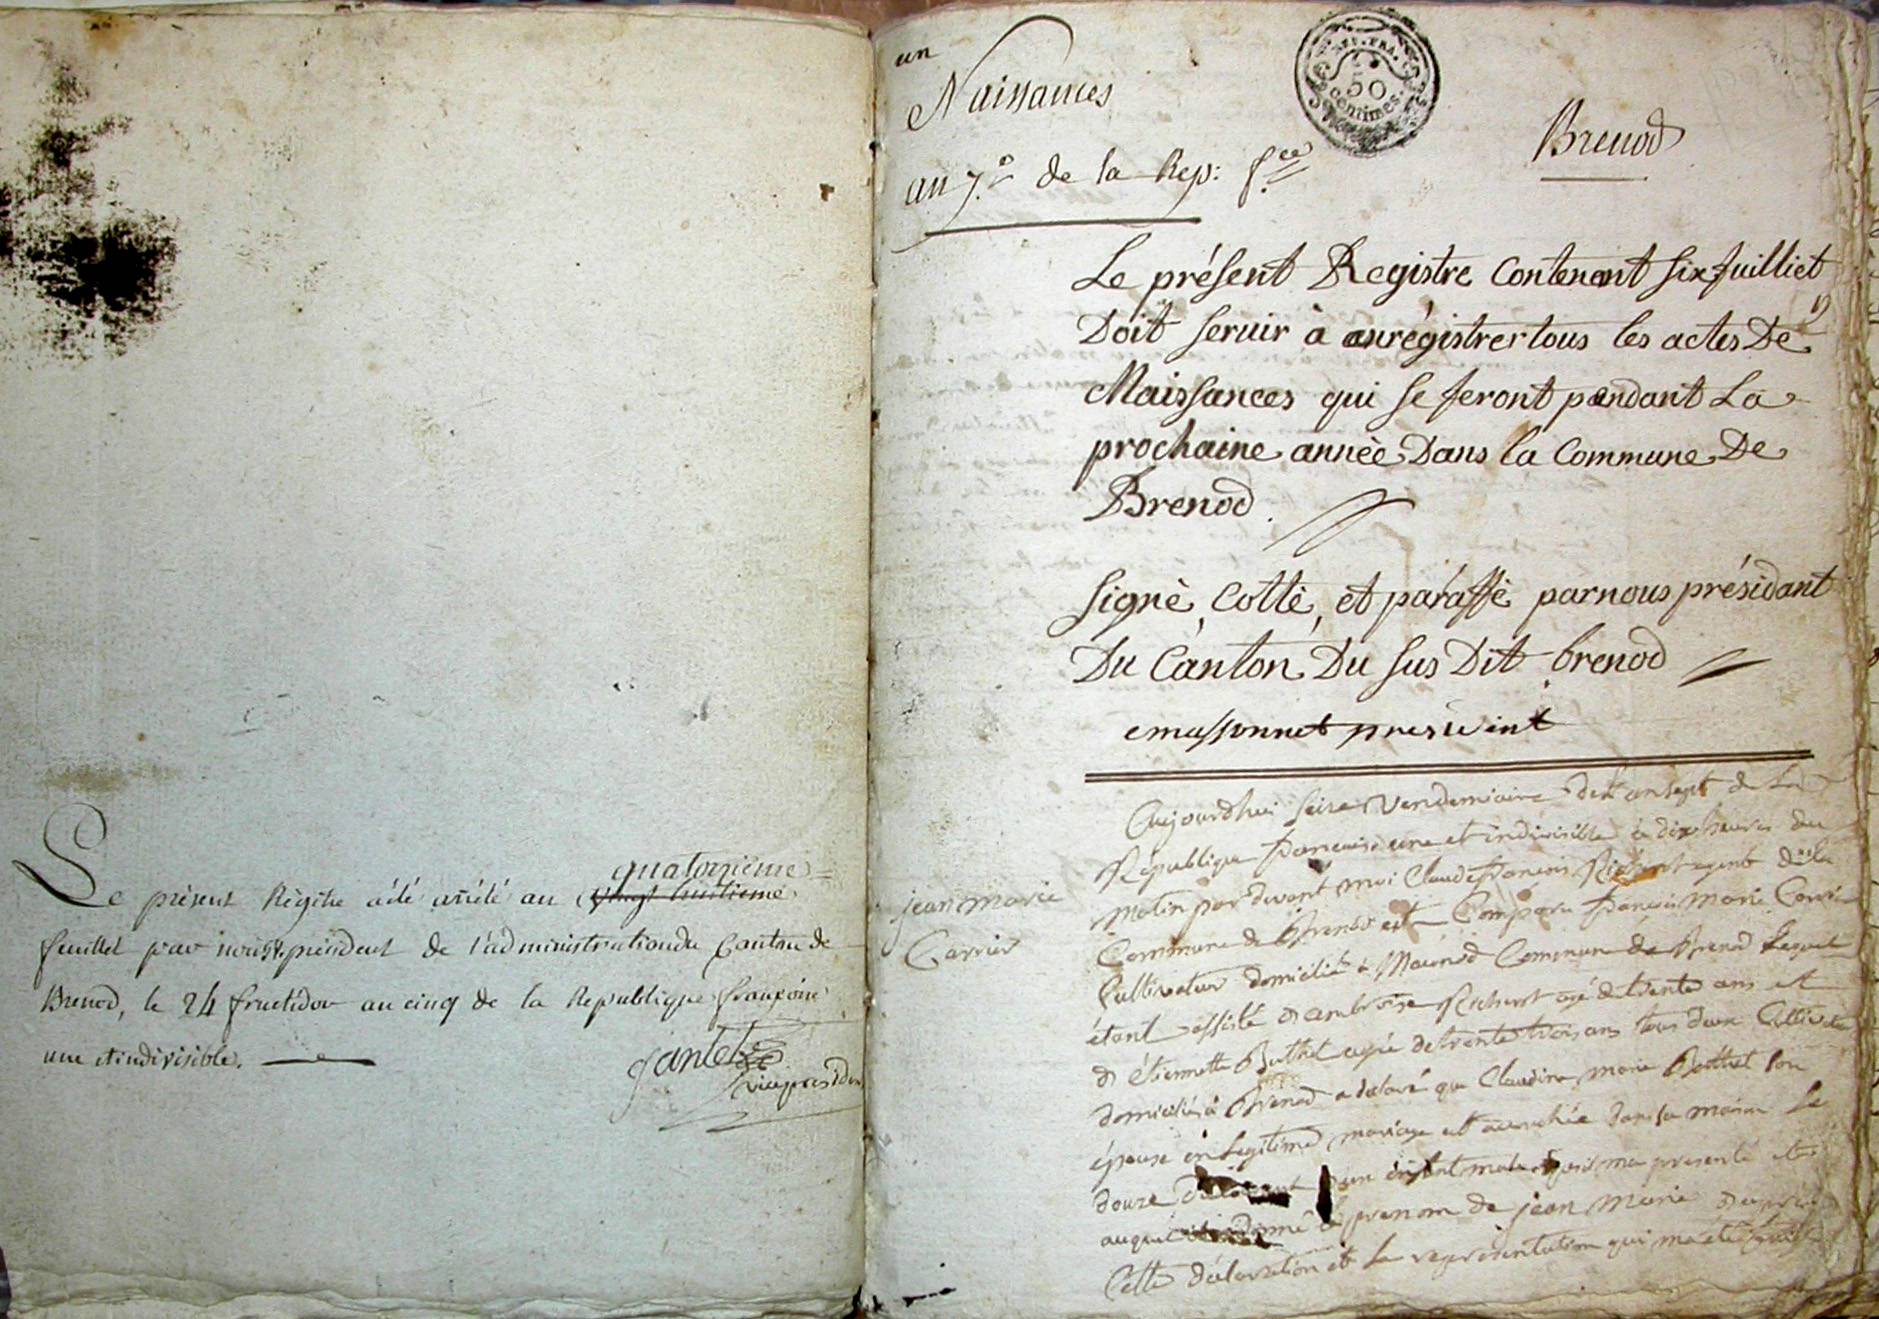 Le présent Régitre a été arrêté au quatorzieme
vingt huitieme
feuillet par nous vice president de l'administration du Canton de
Brenod, le 24 fructidor an cinq de la Republique françoise
une et indivisible.
Jantet
vice president
un
Naissances
an 7.e de la Rep: f.ce
REP. FRA.
50
centimes.
Brenod
Le présent Registre Contenant six fuilliet
Doit servir à anrégistrer tous les actes De
Naissances qui se feront pendant La
prochaine année Dans la Commune De
Brenod.
signè, Cottè, et paraffè par nous présidant
Du Canton Du sus Dit brenod
emassonnet president
jean marie
Carrier
Aujourdhui seize Vendemiaire de l'an sept de La
Republique francaise une et indivisible à dix heures du
matin par devant moi Claude francois Richerot agent de la
Commune de Brenod est Comparu francois marie Carrier
Cultivateur domicilié à Macconod Commune de Brenod Lequel
étant assisté d'ambroise Richerot agé de trente ans et
d'étiennette Buthet agée de trente trois ans tous deux Cultivate
domiciliés à Brenod a declaré que Claudine marie Buthet son
épouse en Legitime mariage est accouchée dans sa maison Le
douze du courant d'un enfant male quil ma presenté et
auquel donné le prenom de jean marie d'après
Cette déclaration et la representation qui ma été faite